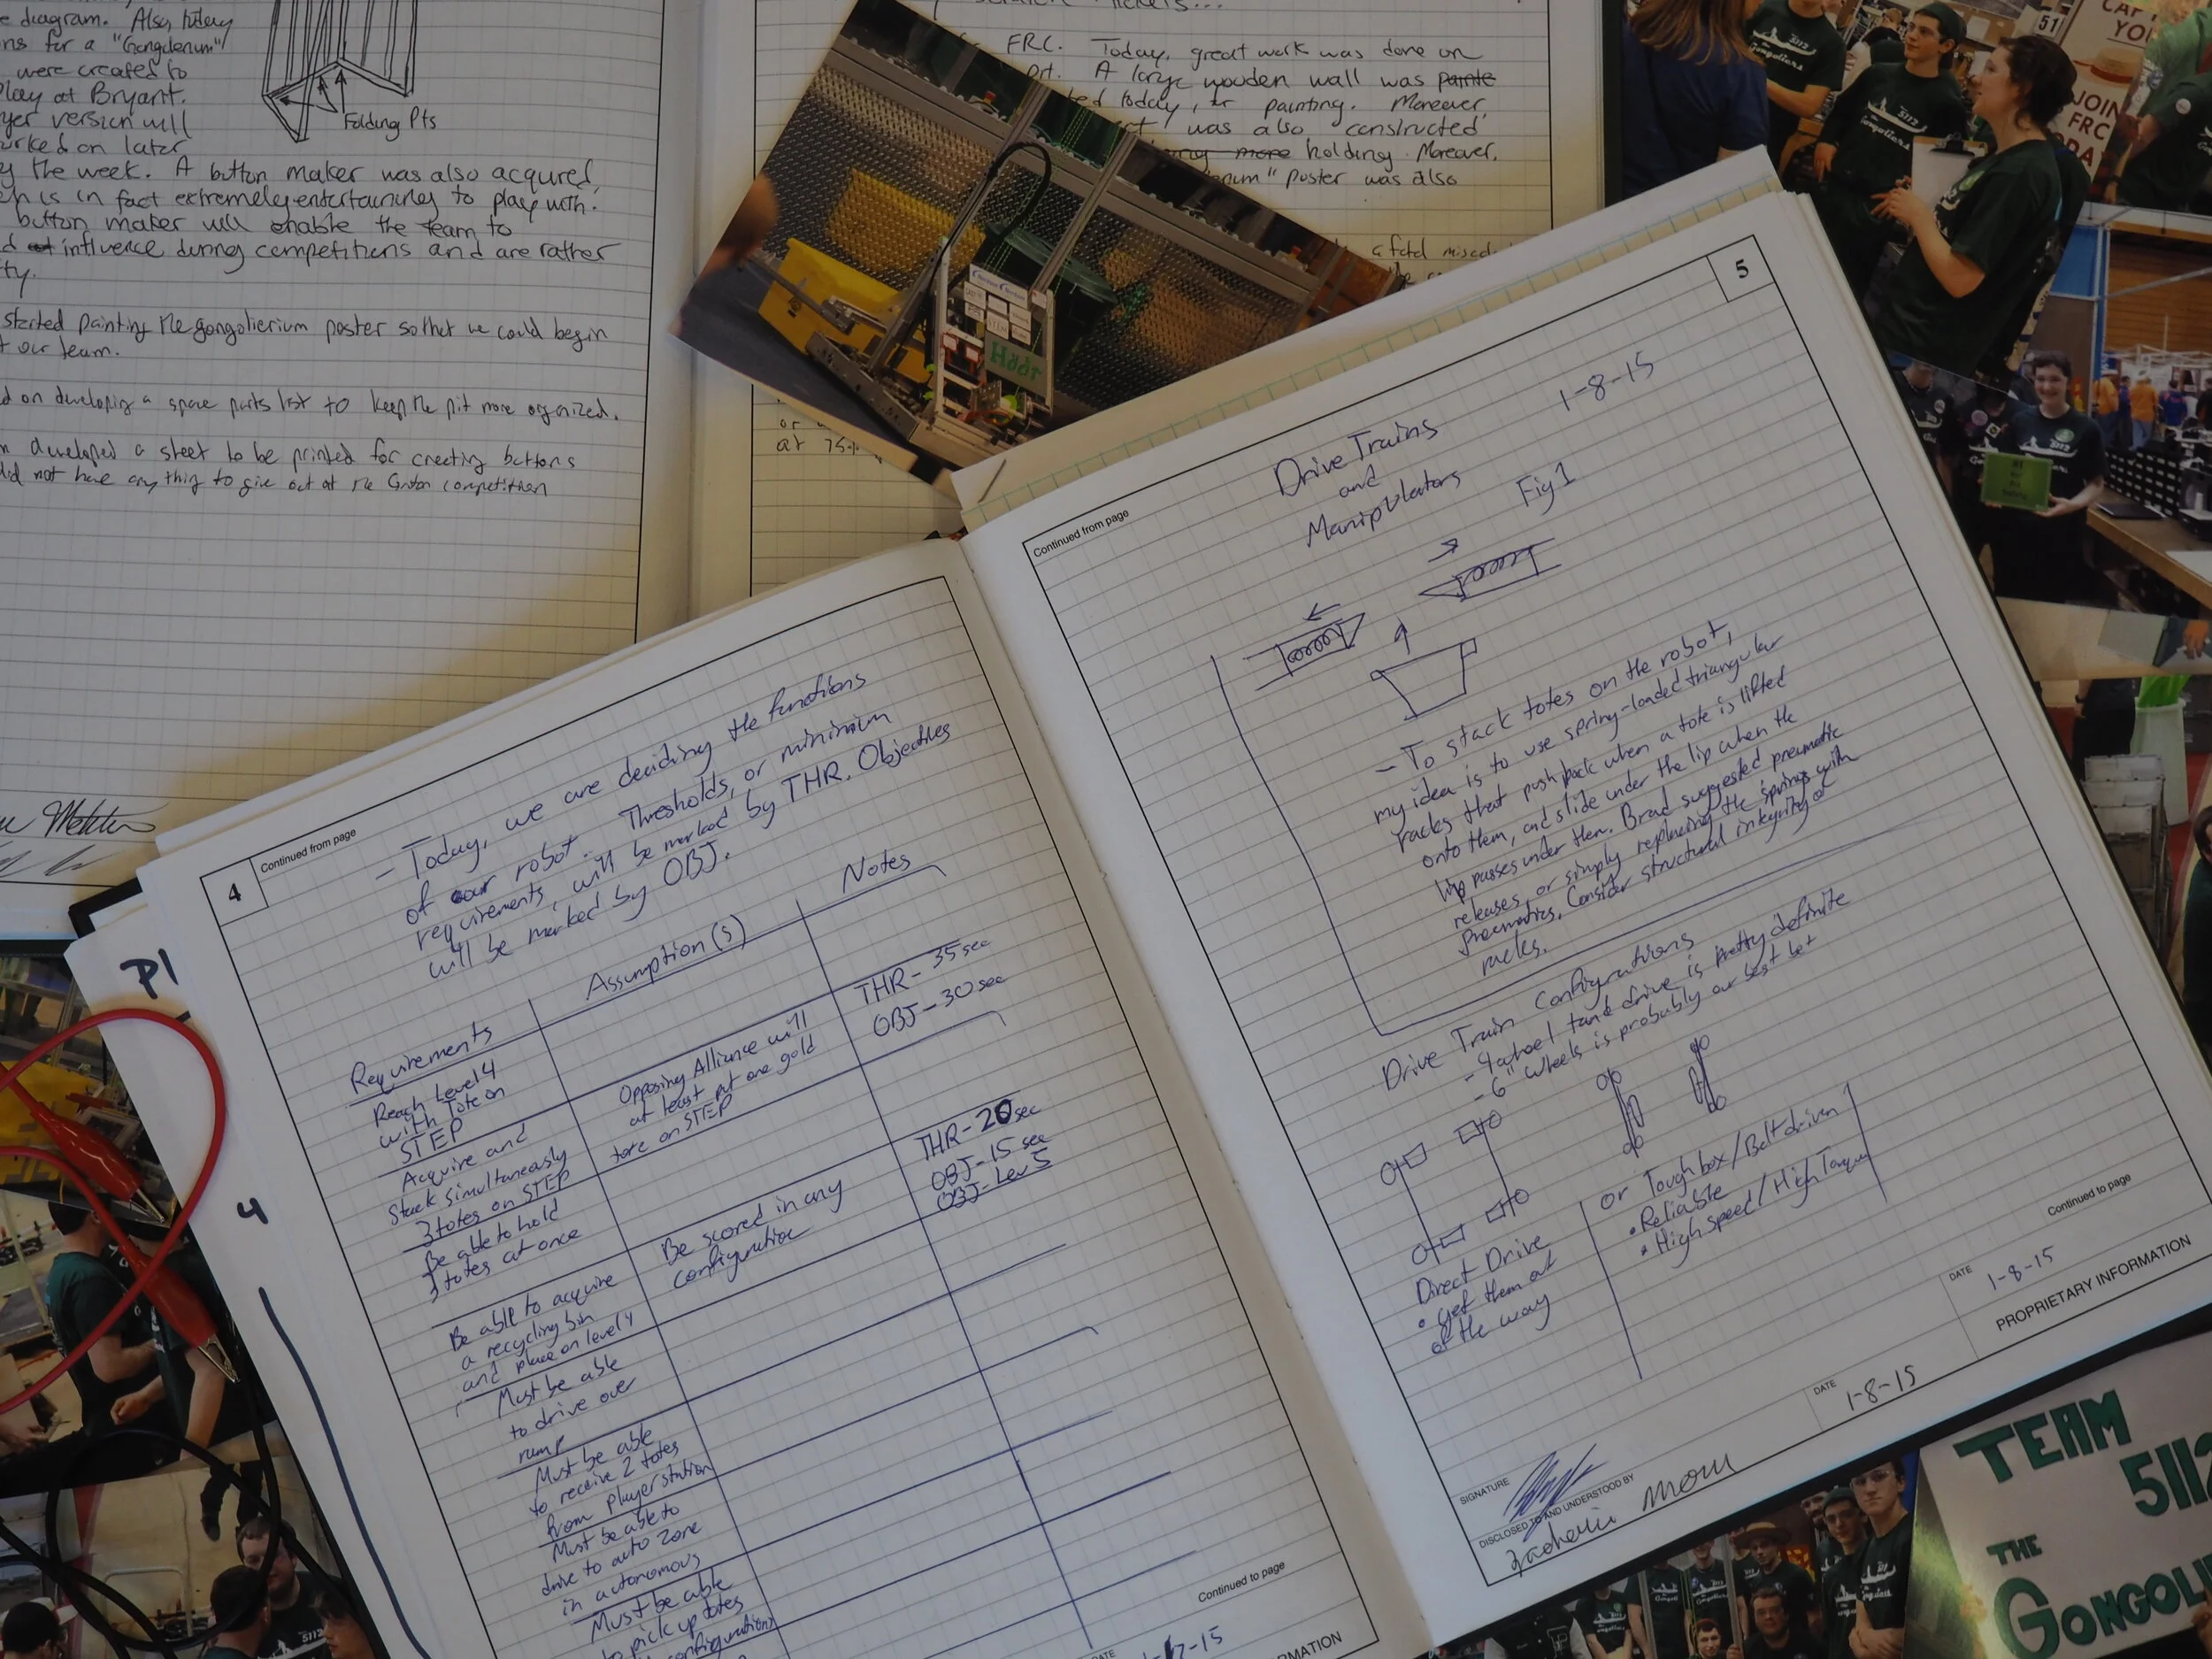 e diagram. Also, today
ns for a "Gongolierium"
were created to
play at Bryant.
yer version will
urked on later
y the week. A button maker was also acquired,
ch is in fact extremely entertaining to play with.
button maker will enable the team to
d influence during competitions and are rather
ty.
started painting the gongolierium poster so that we could begin
t our team.
d on developing a spare parts list to keep the pit more organized.
n developed a sheet to be printed for creating buttons
did not have anything to give out at the competition
Folding Pts
FRC. Today, great work was done on
ort. A large wooden wall was painte
ted today, for painting. Moreover,
was also constructed
more holding. Moreover,
poster was also
a fatal
at 75
Hödr
5112
The Gongoliers
51
JOIN
FRC
P1
4
4
Continued from page
- Today, we are deciding the functions
of our robot. Thresholds, or minimum
requirements, will be marked by THR. Objectives
will be marked by OBJ.
Requirements
Assumption(s)
Notes
Reach Level 4
with Tote on
STEP
Opposing Alliance will
at least put one gold
tote on STEP
THR - 35 sec
OBJ - 30 sec
Acquire and
Stack simultaneously
3 totes on STEP
THR - 20 sec
OBJ - 15 sec
OBJ - Lev 5
Be able to hold
3 totes at once
Be scored in any
configuration
Be able to acquire
a recycling bin
and place on level 4
Must be able
to drive over
ramp
Must be able
to receive 2 totes
from player station
Must be able to
drive to auto zone
in autonomous
Must be able
to pick up totes
configuration)
Continued to page
DATE
-15
5
Continued from page
1-8-15
Drive Trains
and
Manipulators
Fig 1
- To stack totes on the robot,
my idea is to use spring-loaded triangular
racks that push back when a tote is lifted
onto them, and slide under the lip when the
lip passes under them. Brad suggested pneumatic
releases, or simply replacing the springs with
pneumatics. Consider structural integrity of
racks.
Drive Train Configurations
- 4 wheel tank drive is pretty definite
- 6" wheels is probably our best bet
Direct Drive
• get them out
of the way
or Toughbox/Belt driven
• Reliable
• High speed/High Torque
Continued to page
SIGNATURE
DATE
1-8-15
DISCLOSED TO AND UNDERSTOOD BY
DATE
1-8-15
PROPRIETARY INFORMATION
TEAM
5112
THE
GONGOLI